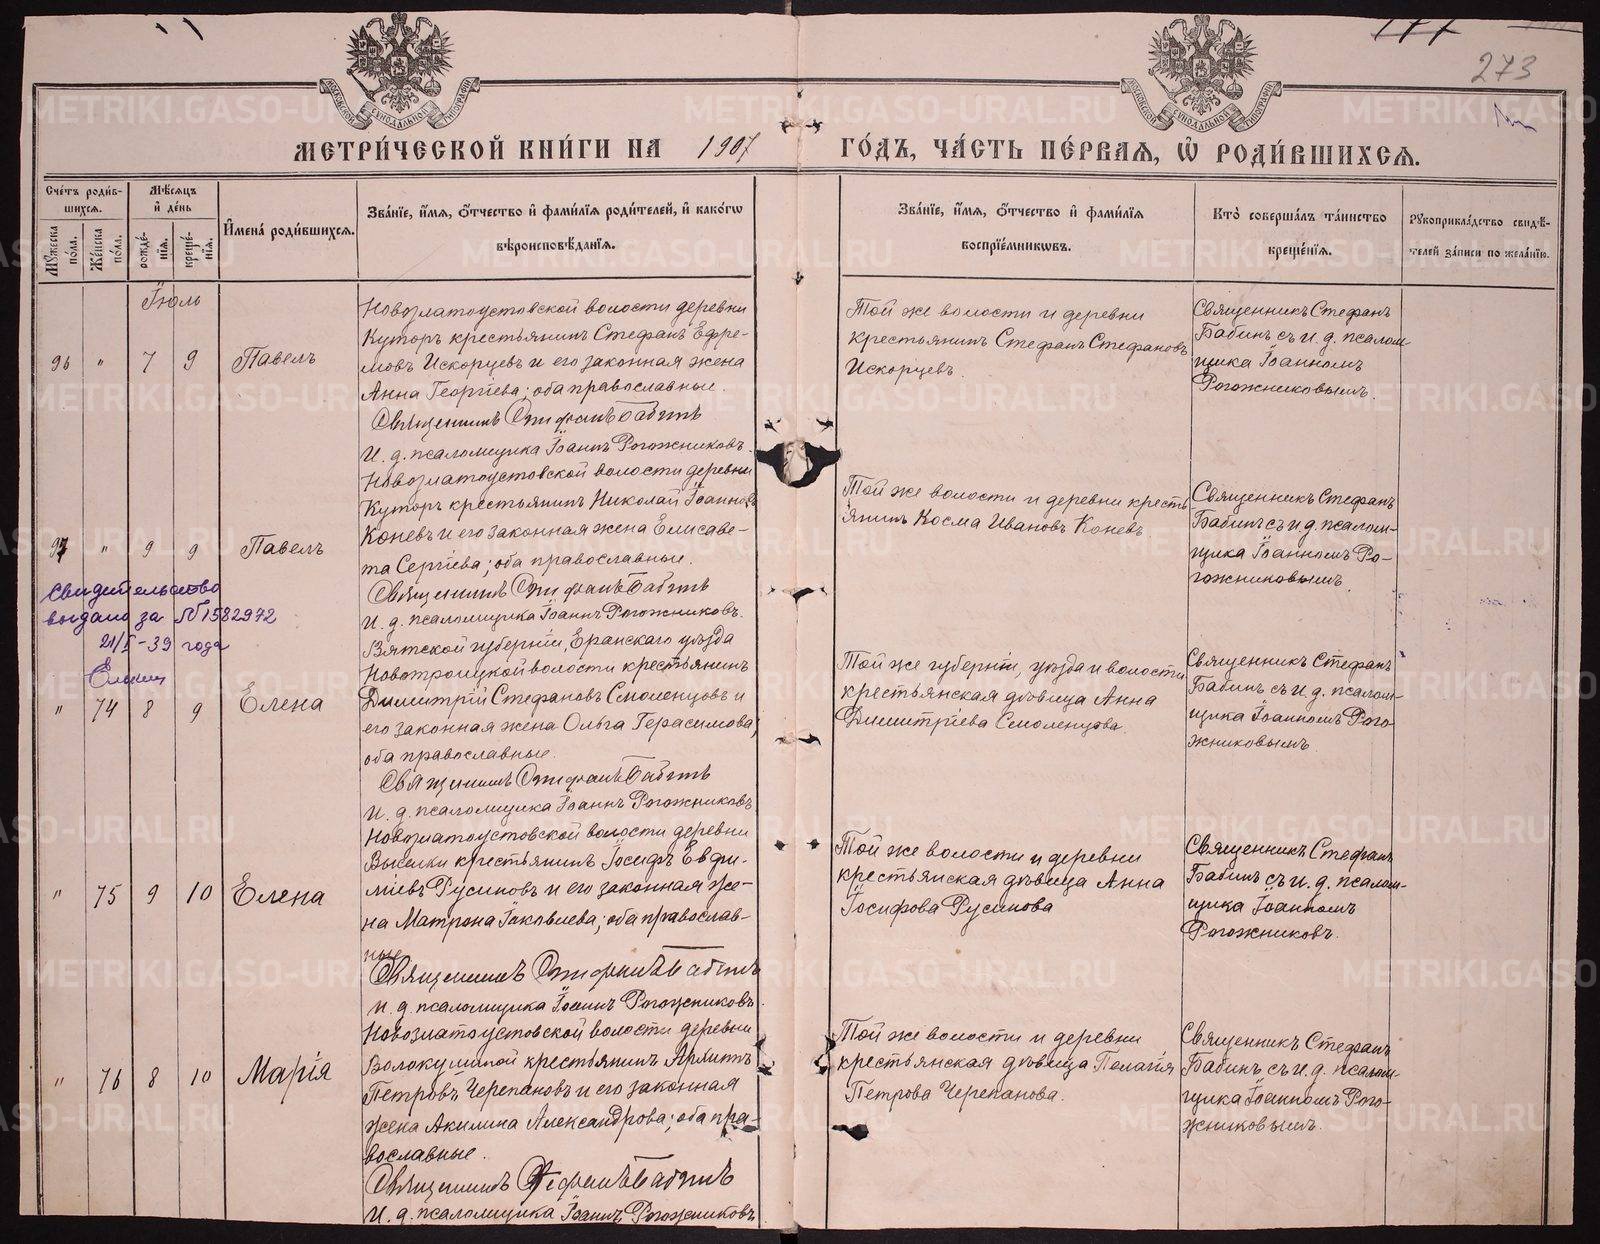 177
273
МЕТРИ́ЧЕСКОЙ КНИ́ГИ НА 1907 ГО́ДЪ, ЧА́СТЬ ПЕ́РВАЯ, Ѡ РОДИ́ВШИХСЯ.
Сче́тъ роди́в-
шихся.
Мѣ́сяцъ
и де́нь
Му́жеска по́ла.
Же́нска по́ла.
рожде́-
нія.
креще́-
нія.
Имена́ роди́вшихся.
Зва́нїе, и́мя, о́тчество и фами́лїя роди́телей, и како́гѡ
вѣроисповѣ́данїя.
Зва́нїе, и́мя, о́тчество и фами́лїя
воспрїе́мникѡвъ.
Кто̀ соверша́лъ та́инство
креще́нїя.
Рукоприкла́дство свидѣ́-
телей за́писи по жела́нїю.
Іюль
96 " 7 9 Павелъ
Новозлатоустовской волости деревни
Куторъ крестьянинъ Стефанъ Ефре-
мовъ Искорцевъ и его законная жена
Анна Георгіева; оба православные.
Священникъ Стефанъ Бабинъ
И. д. псаломщика Іоаннъ Рогожниковъ.
Той же волости и деревни
крестьянинъ Стефанъ Стефановъ
Искорцевъ.
Священникъ Стефанъ
Бабинъ съ и. д. псалом-
щика Іоанномъ
Рогожниковымъ.
97 " 9 9 Павелъ
Новозлатоустовской волости деревни
Куторъ крестьянинъ Николай Іоанновъ
Коневъ и его законная жена Елисаве-
та Сергіева; оба православные.
Священникъ Стефанъ Бабинъ
И. д. псаломщика Іоаннъ Рогожниковъ.
Той же волости и деревни кресть-
янинъ Косма Ивановъ Коневъ.
Священникъ Стефанъ
Бабинъ съ и. д. псалом-
щика Іоанномъ Ро-
гожниковымъ.
Свидетельство
выдано за № 1582972
21/I-39 года
" 74 8 9 Елена
Вятской губерніи, Еранскаго уѣзда
Новотроицкой волости крестьянинъ
Димитрій Стефановъ Смоленцовъ и
его законная жена Ольга Герасимова;
оба православные.
Священникъ Стефанъ Бабинъ
И. д. псаломщика Іоаннъ Рогожниковъ
Той же губерніи, уѣзда и волости
крестьянская дѣвица Анна
Димитріева Смоленцова.
Священникъ Стефанъ
Бабинъ съ и. д. псалом-
щика Іоанномъ Рого-
жниковымъ.
" 75 9 10 Елена
Новозлатоустовской волости деревни
Выселки крестьянинъ Іосифъ Евфи-
міевъ Русиновъ и его законная же-
на Матрона Іаковлева; оба православ-
ные
Священникъ Стефанъ Бабинъ
И. д. псаломщика Іоаннъ Рогожниковъ.
Той же волости и деревни
крестьянская дѣвица Анна
Іосифова Русинова
Священникъ Стефанъ
Бабинъ съ и. д. псалом-
щика Іоанномъ
Рогожниковъ.
" 76 8 10 Марія
Новозлатоустовской волости деревни
крестьянинъ
Петровъ Черепановъ и его законная
жена Акилина Александрова; оба пра-
вославные.
Священникъ Стефанъ Бабинъ
И. д. псаломщика Іоаннъ Рогожниковъ
Той же волости и деревни
крестьянская дѣвица Пелагія
Петрова Черепанова.
Священникъ Стефанъ
Бабинъ съ и. д. псалом-
щика Іоанномъ Рого-
жниковымъ.
METRIKI.GASO-URAL.RU